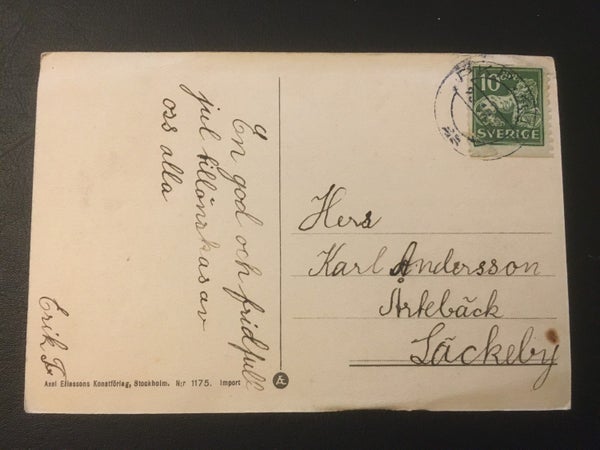 En god och fridfull
jul tillönskas av
oss alla
Erik
10
SVERIGE
Herr
Karl Andersson
Artebäck
Läckeby
Axel Eliassons Konstförlag, Stockholm. N:r 1175. Import
Æ